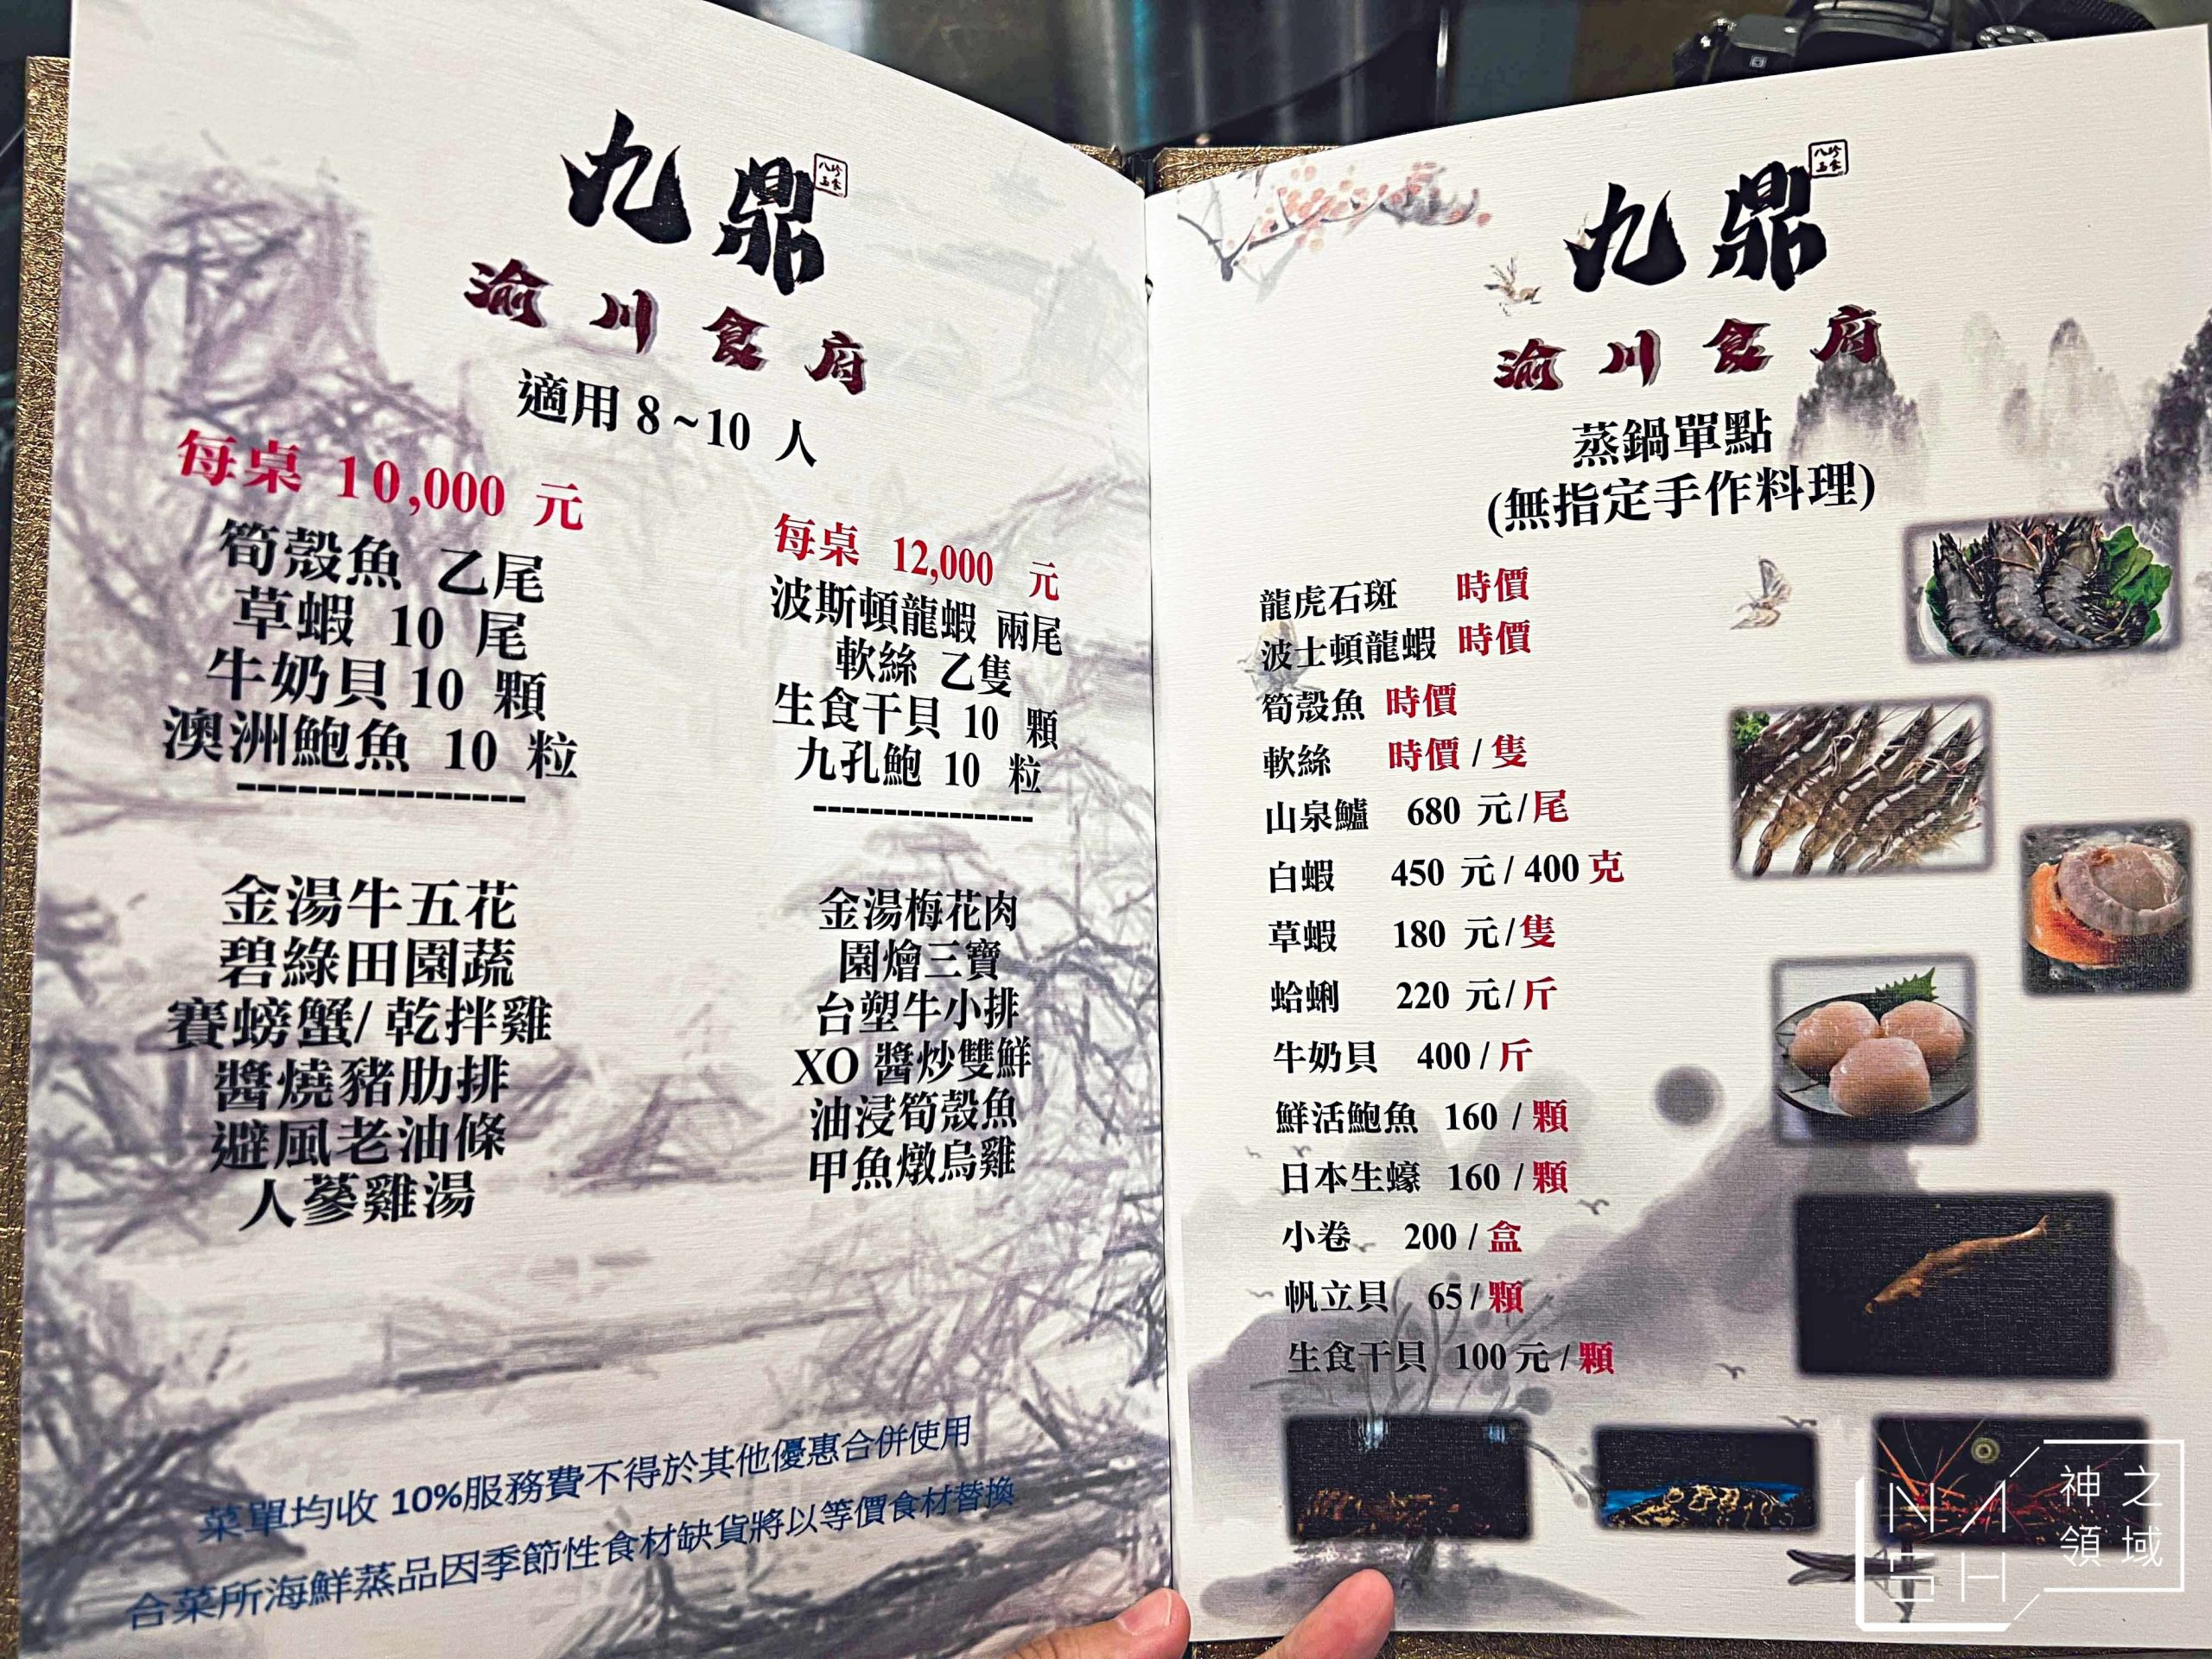 九鼎
八珍
玉食
渝川食府
適用 8~10 人
每桌 10,000 元
筍殼魚 乙尾
草蝦 10 尾
牛奶貝 10 顆
澳洲鮑魚 10 粒
---------------
金湯牛五花
碧綠田園蔬
賽螃蟹/ 乾拌雞
醬燒豬肋排
避風老油條
人蔘雞湯
每桌 12,000 元
波斯頓龍蝦 兩尾
軟絲 乙隻
生食干貝 10 顆
九孔鮑 10 粒
-----------------
金湯梅花肉
園燴三寶
台塑牛小排
XO 醬炒雙鮮
油浸筍殼魚
甲魚燉烏雞
菜單均收 10%服務費不得於其他優惠合併使用
合菜所海鮮蒸品因季節性食材缺貨將以等價食材替換
九鼎
八珍
玉食
渝川食府
蒸鍋單點
(無指定手作料理)
龍虎石斑 時價
波士頓龍蝦 時價
筍殼魚 時價
軟絲 時價 / 隻
山泉鱸 680 元/尾
白蝦 450 元/ 400 克
草蝦 180 元/隻
蛤蜊 220 元/斤
牛奶貝 400 / 斤
鮮活鮑魚 160 / 顆
日本生蠔 160 / 顆
小卷 200 / 盒
帆立貝 65 / 顆
生食干貝 100 元 / 顆
NASH
神之
領域